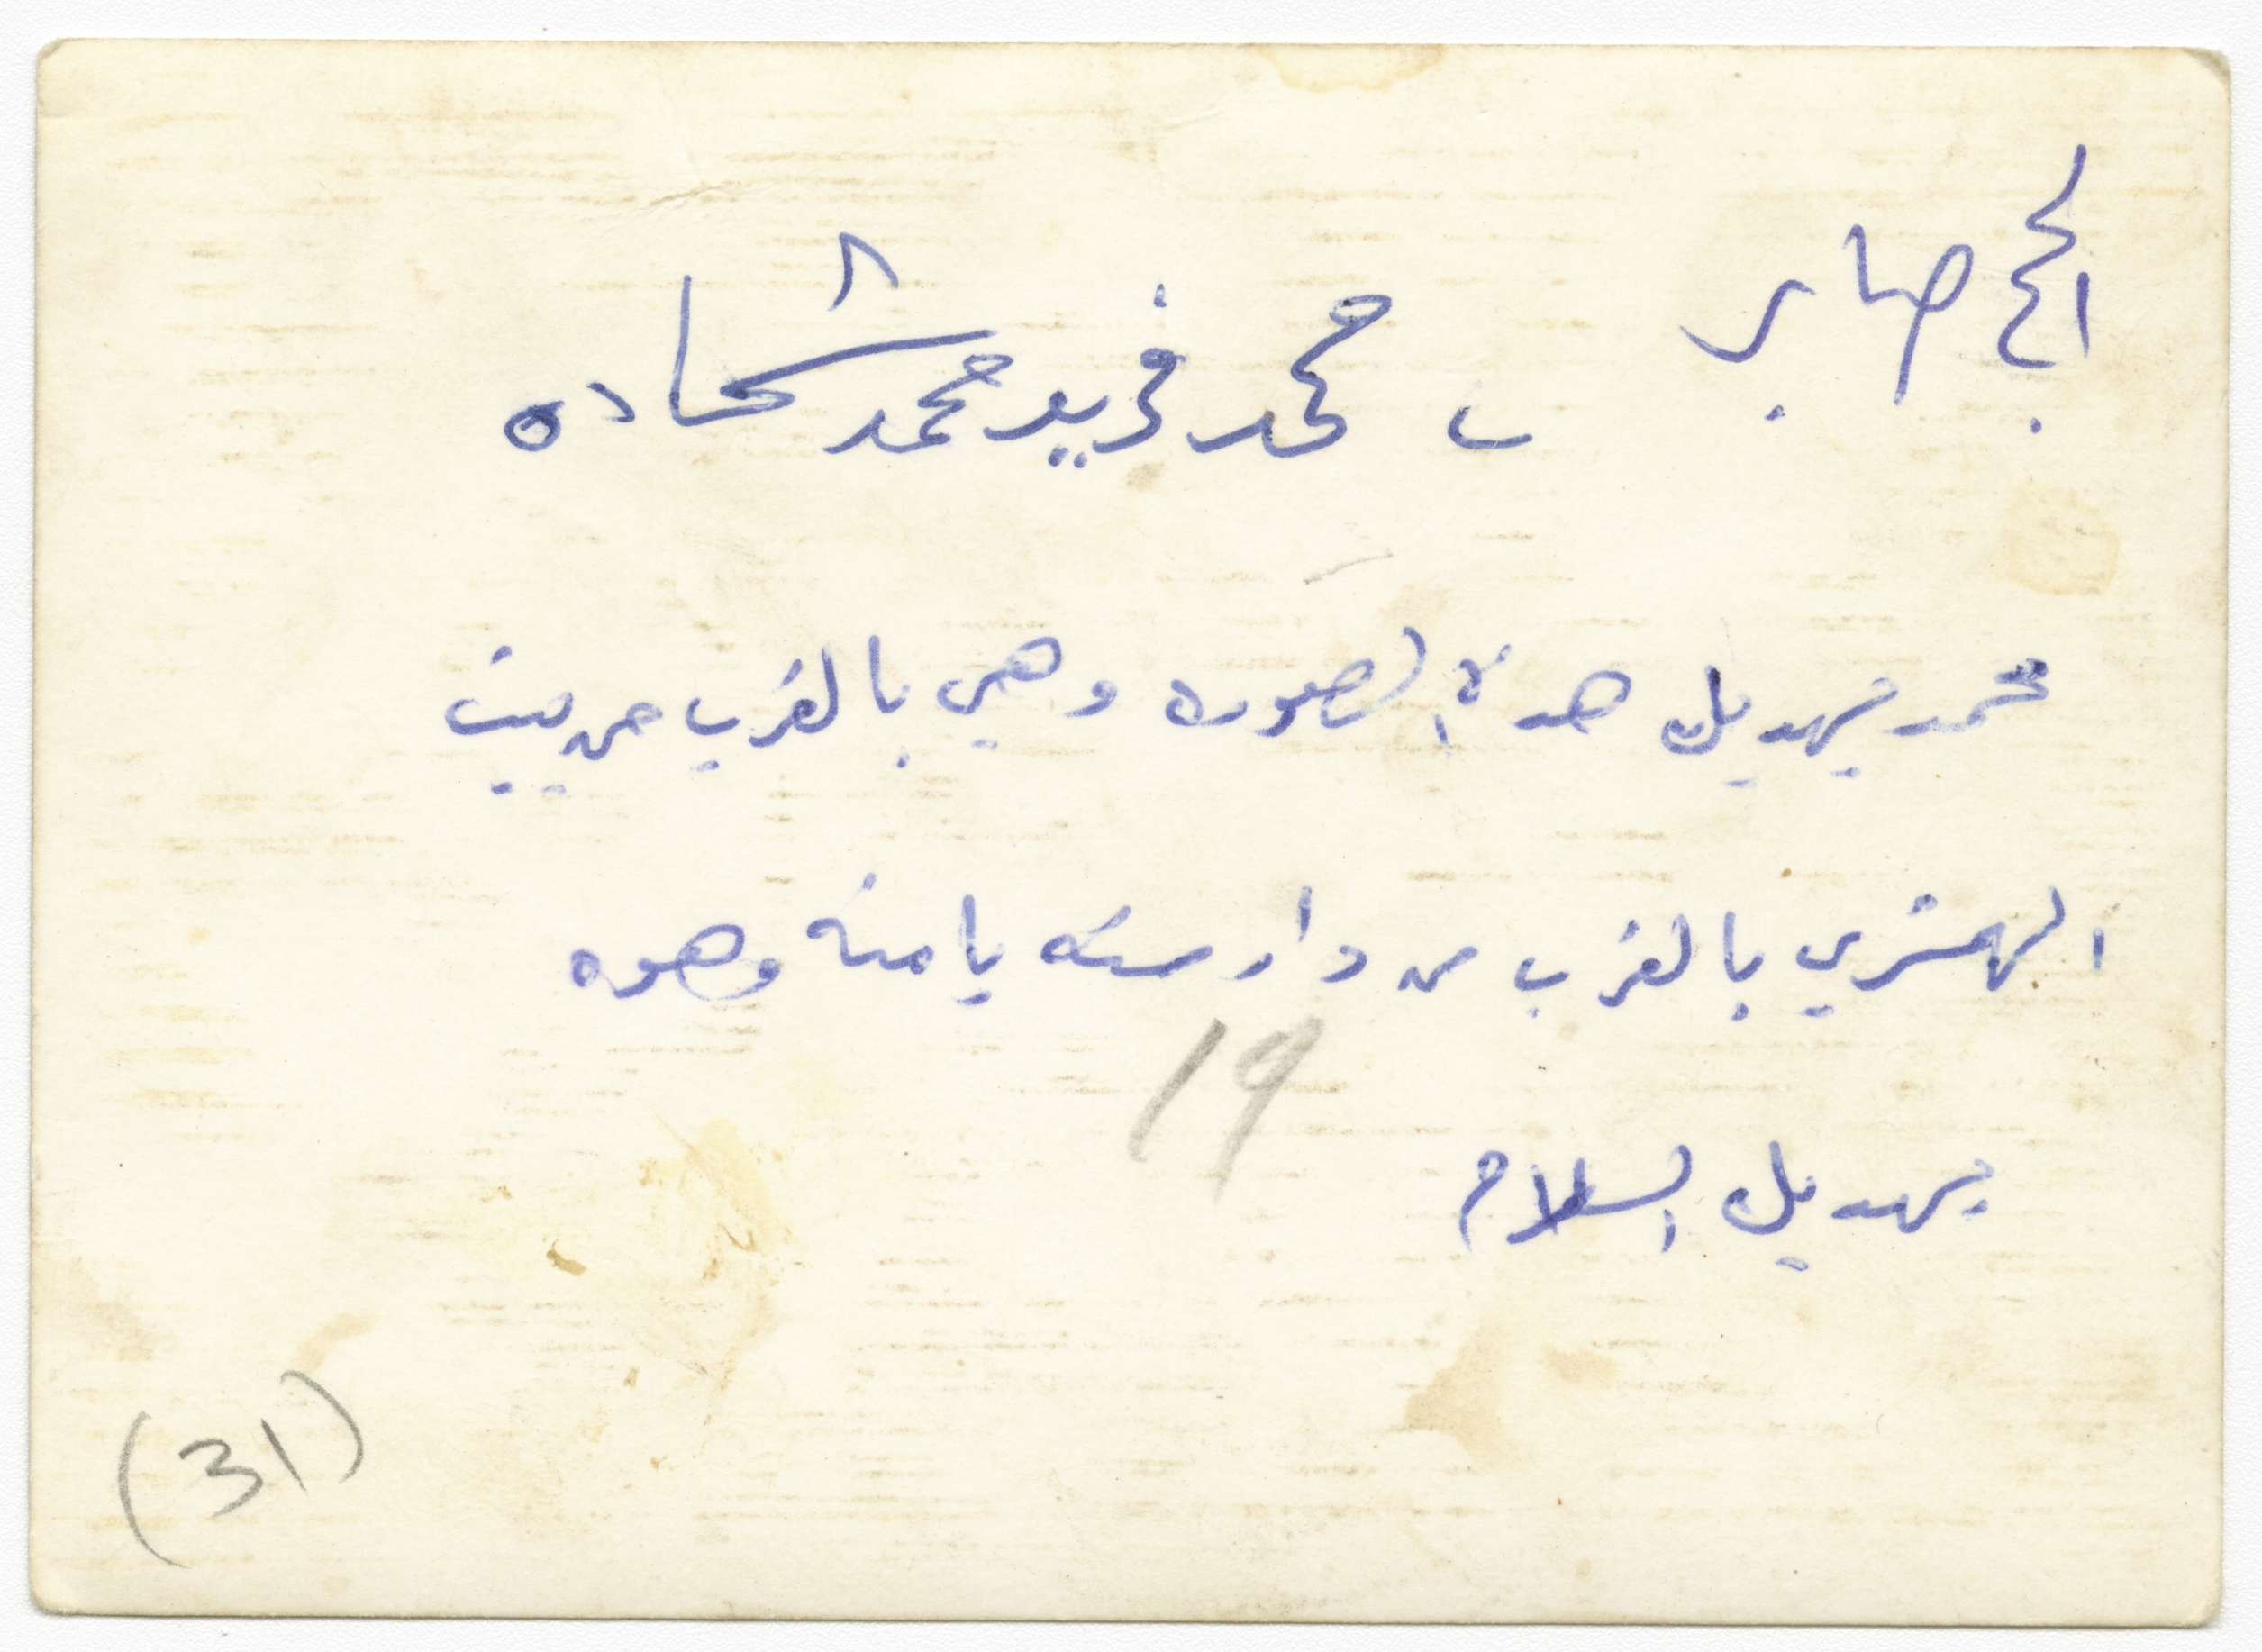 الحج صابر
ب محمد فريد محمد شحاده
محمد يهديك هدة الصوره وهي بالقرب من بيت
المشتري بالقرب من دار سته يامنه وهوه
19
يهديك السلام
(31)